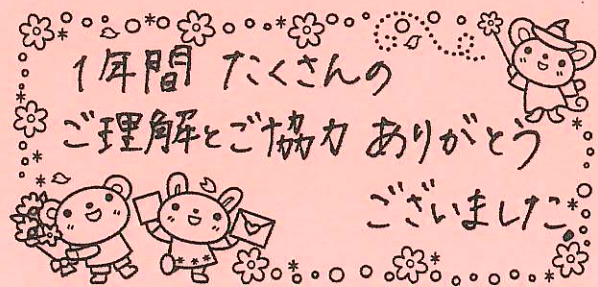 1年間 たくさんの
ご理解とご協力 ありがとう
ございました。